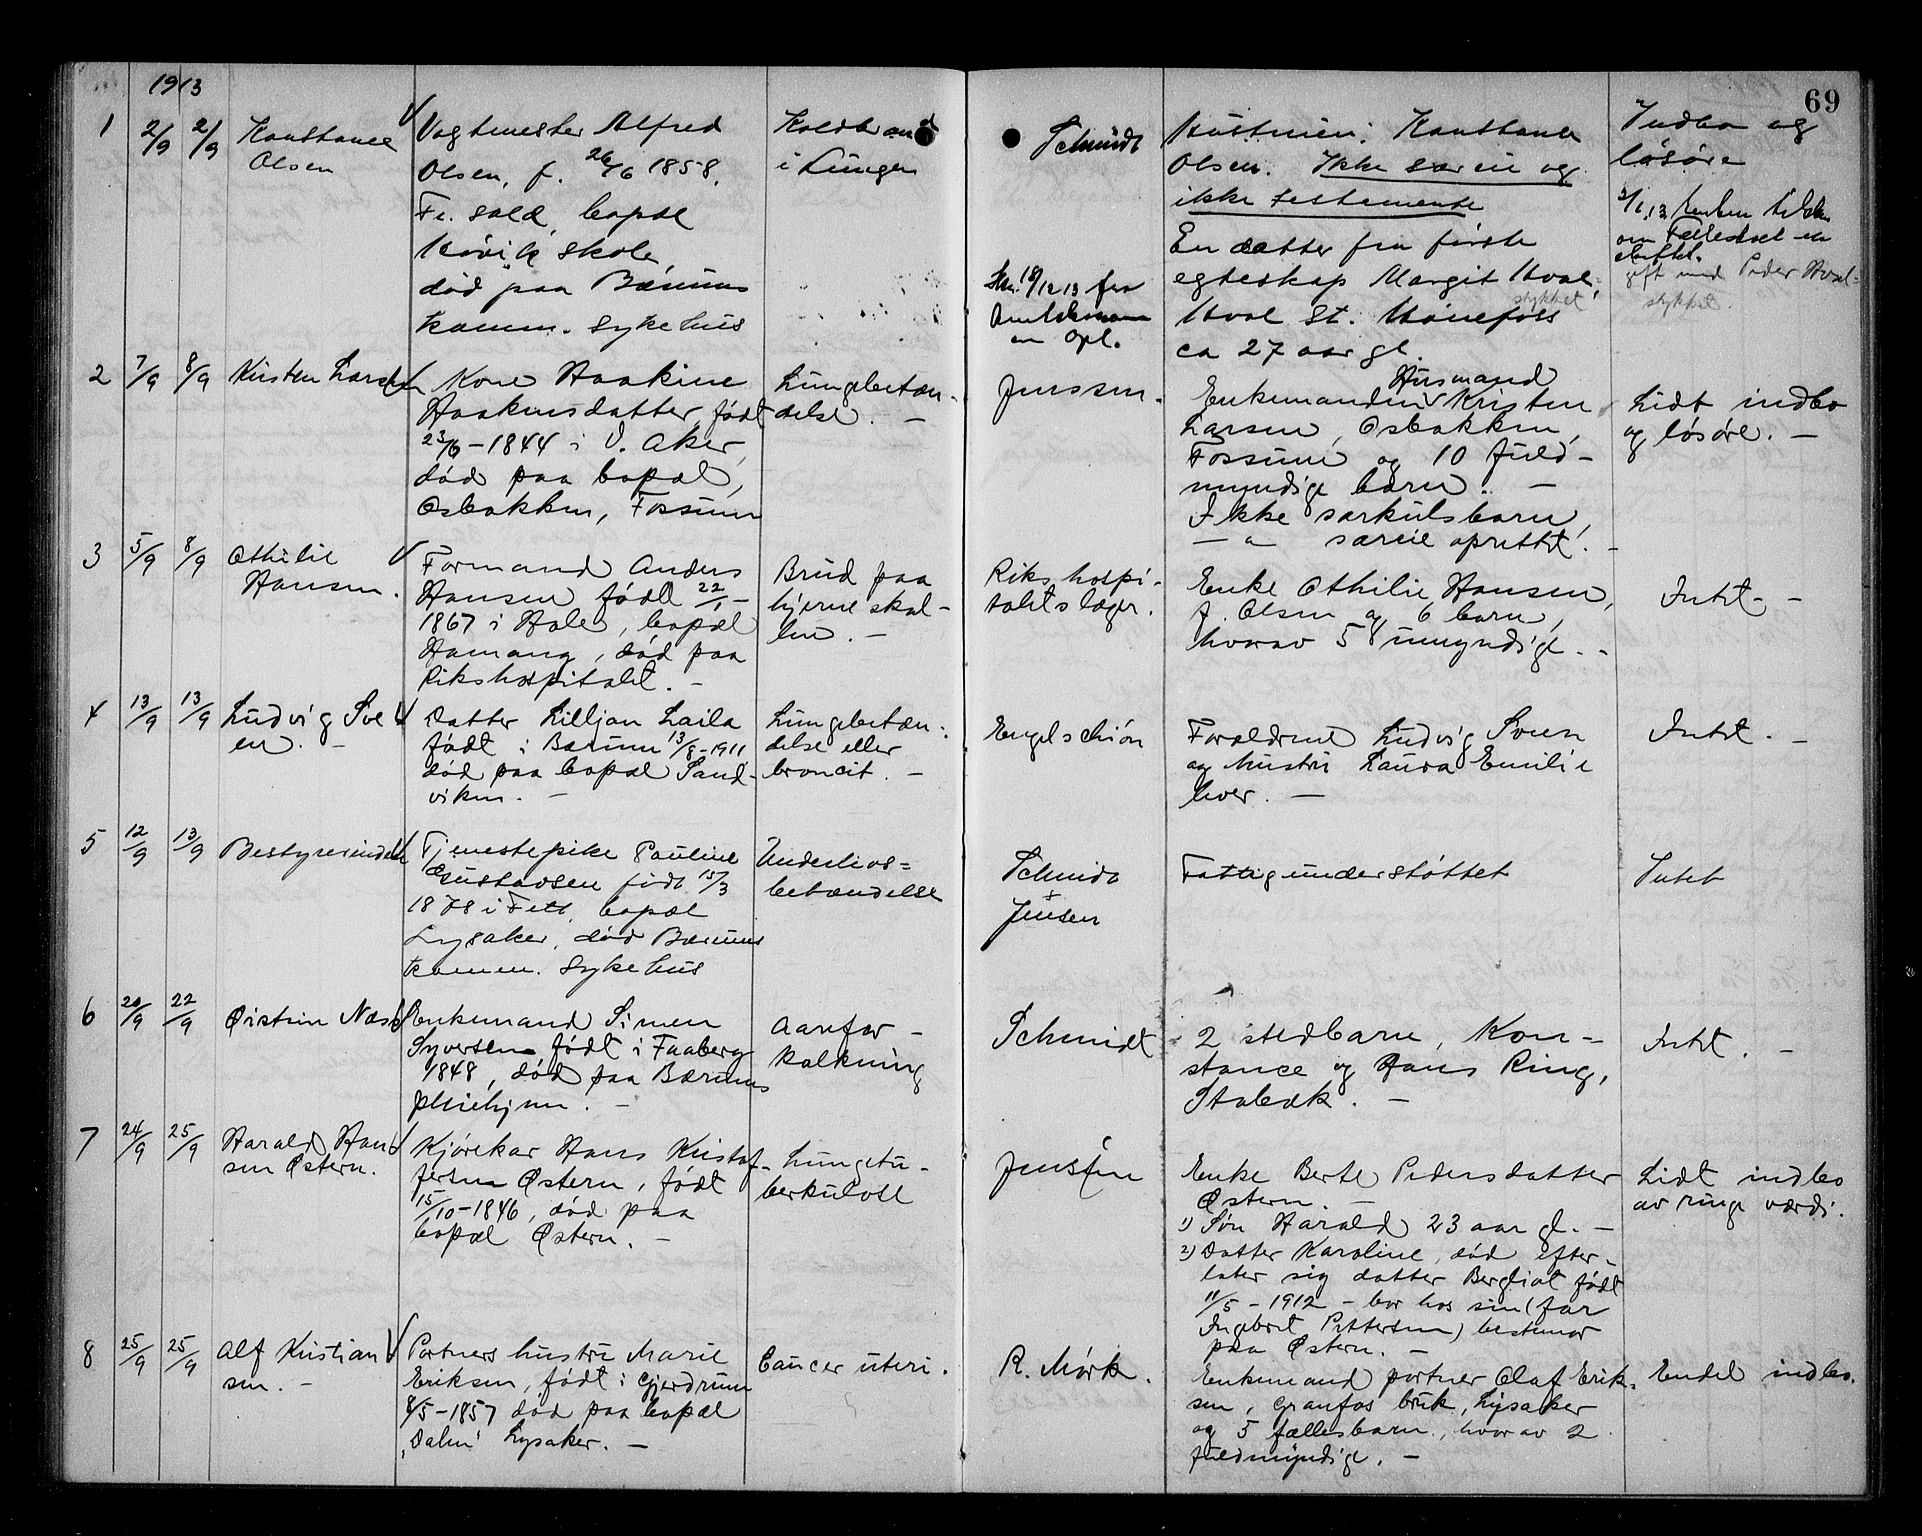 1913
69
1 2/9 2/9 Konstance
Olsen
Vagtmester Alfred
Olsen, f. 26/6 1858,
Fr. sald, bopæl
Høvik skole,
død paa Bærums
komm. sykehus
Koldbrand
i Lungen
Schmidt
Skr. 18/12 13 fra
om opl.
Hustruen: Konstance
Olsen. Ikke særeie og
ikke testamente
En datter fra første
egteskap Margit Hval-
stykket
Hval st. Hønefoss
ca 27 aar gl.
Indbo og
løsøre
gift med Peder Hval-
stykket.
2 7/9 8/9 Kristen Larsen
Kone Haakine
Haakensdatter født
23/6-1844 i V. Aker,
død paa bopæl,
Osbakken, Fossum
Lungebetæn-
delse. —
Jenssen.
Husmand
Enkemanden Kristen
Larsen, Osbakken,
Fossum og 10 fuld-
myndige barn. —
Ikke særkulsbarn,
— " — særeie oprettet. -
Lidt indbo
og løsøre. —
3 5/9 8/9 Othilie
Hansen.
Formand Anders
Hansen født 22/1-
1867 i Hole, bopæl
Hamang, død paa
Rikshospitalet. —
Brud paa
hjerneskal-
len. —
Rikshospi-
talets læger.
Enke Othilie Hansen,
f. Olsen og 6 barn,
hvorav 5 umyndige. -
Intet -
4 13/9 13/9 Ludvig Sve
en. —
Datter Lilljan Laila
født i Bærum 13/8-1911
død paa bopæl Sand-
viken. —
Lungebetæn-
delse eller
broncit. —
Engelschiøn
Forældrene Ludvig Sveen
og hustru Laura Emilie
lever. —
Intet. —
5 12/9 13/9 Bestyrerinden
Tjenestepike Pauline
Gustavsen født 15/3
1878 i Fett, bopæl
Lysaker, død Bærums
komm. sykehus
Underlivs-
betændelse
Schmidt
+
Jensen
Fattigunderstøttet
Intet
6 20/9 22/9 Øistein Næss
Enkemand Simen
Syversen, født i Faaberg
1848, død paa Bærums
pleiehjem. —
Aarefor-
kalkning
Schmidt
2 stedbarn, Kon-
stance og Hans Ring,
Stabæk. —
Intet. —
7 24/9 25/9 Harald Han
sen Østern.
Kjørekar Hans Kristof-
fersen Østern, født
15/10-1846, død paa
bopæl Østern. —
Lungetu-
berkulose
Jensen
Enke Berte Pedersdatter
Østern —
1) Søn Harald 23 aar gl. —
2) Datter Karoline, død efter-
later sig datter Bergliot født
11/5-1912 - bor hos sin (far
Ingebret Pettersen) bestemor
paa Østern. —
Lidt indbo
av ringe værdi.
8 25/9 25/9 Alf Kristian
sen. —
Portners hustru Marie
Eriksen, født i Gjerdrum
8/5-1857 død paa bopæl
„Dalen" Lysaker. —
Cancer uteri.
R. Mørk.
Enkemand portner Olaf Erik-
sen, Granfos bruk, Lysaker
og 5 fællesbarn, hvorav 2
fuldmyndige. —
Endel indbo.